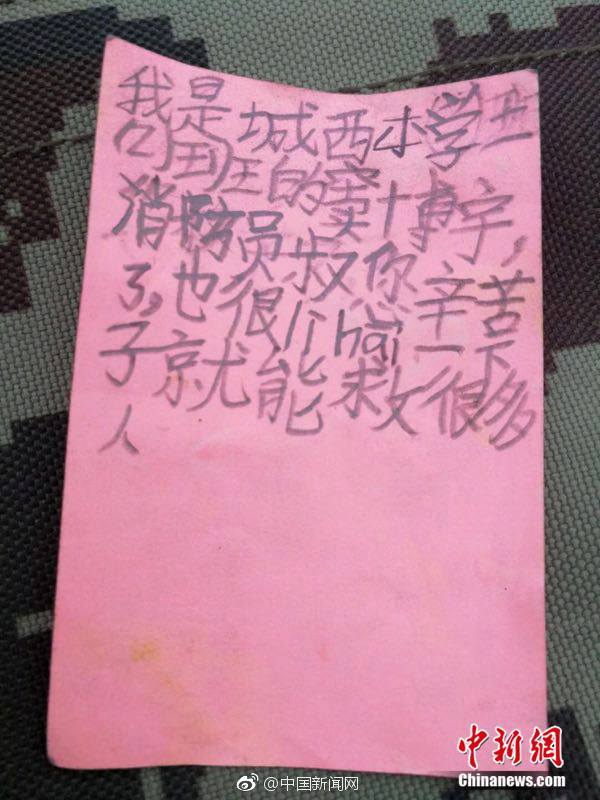 我是城西小学一
句班的窦博宇,
消防员叔你辛苦
了,也很hai一下
子就能救很多
人
中新网
Chinanews.com
@中国新闻网